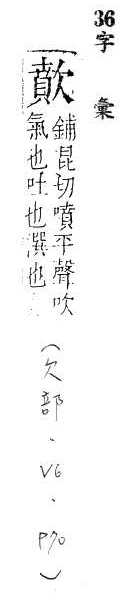 36字彙
歕
鋪昆切噴平聲吹
氣也吐也潠也
(欠部、V6、P70)